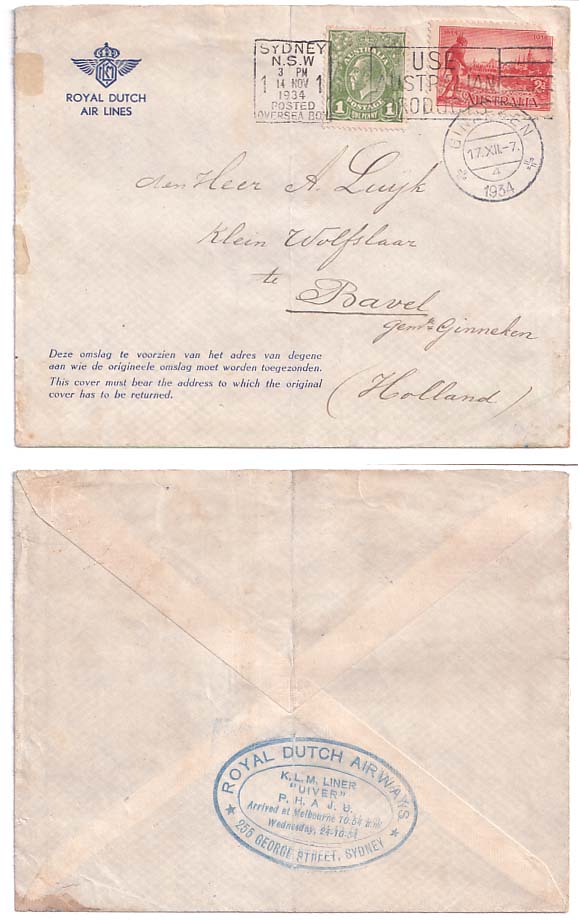 KLM
ROYAL DUTCH
AIR LINES
SYDNEY
N.S.W
3 PM
1 14 NOV 1
1934
POSTED
OVERSEA BOX
AUSTRALIA
1 POSTAGE 1
ONE PENNY
USE
AUSTRALIAN
PRODUCTS
1834 1934
2D
AUSTRALIA
GINNEKEN
17.XII.-7.
4
1934
den Heer A. Luijk
Klein Wolfslaar
te
Bavel
gemte Ginneken
(Holland)
Deze omslag te voorzien van het adres van degene
aan wie de origineele omslag moet worden toegezonden.
This cover must bear the address to which the original
cover has to be returned.
ROYAL DUTCH AIRWAYS
K.L.M. LINER
"UIVER"
P. H. A J. U.
Arrived at Melbourne 10.54 a.m.
Wednesday, 24-10-34
★ 255 GEORGE STREET, SYDNEY ★